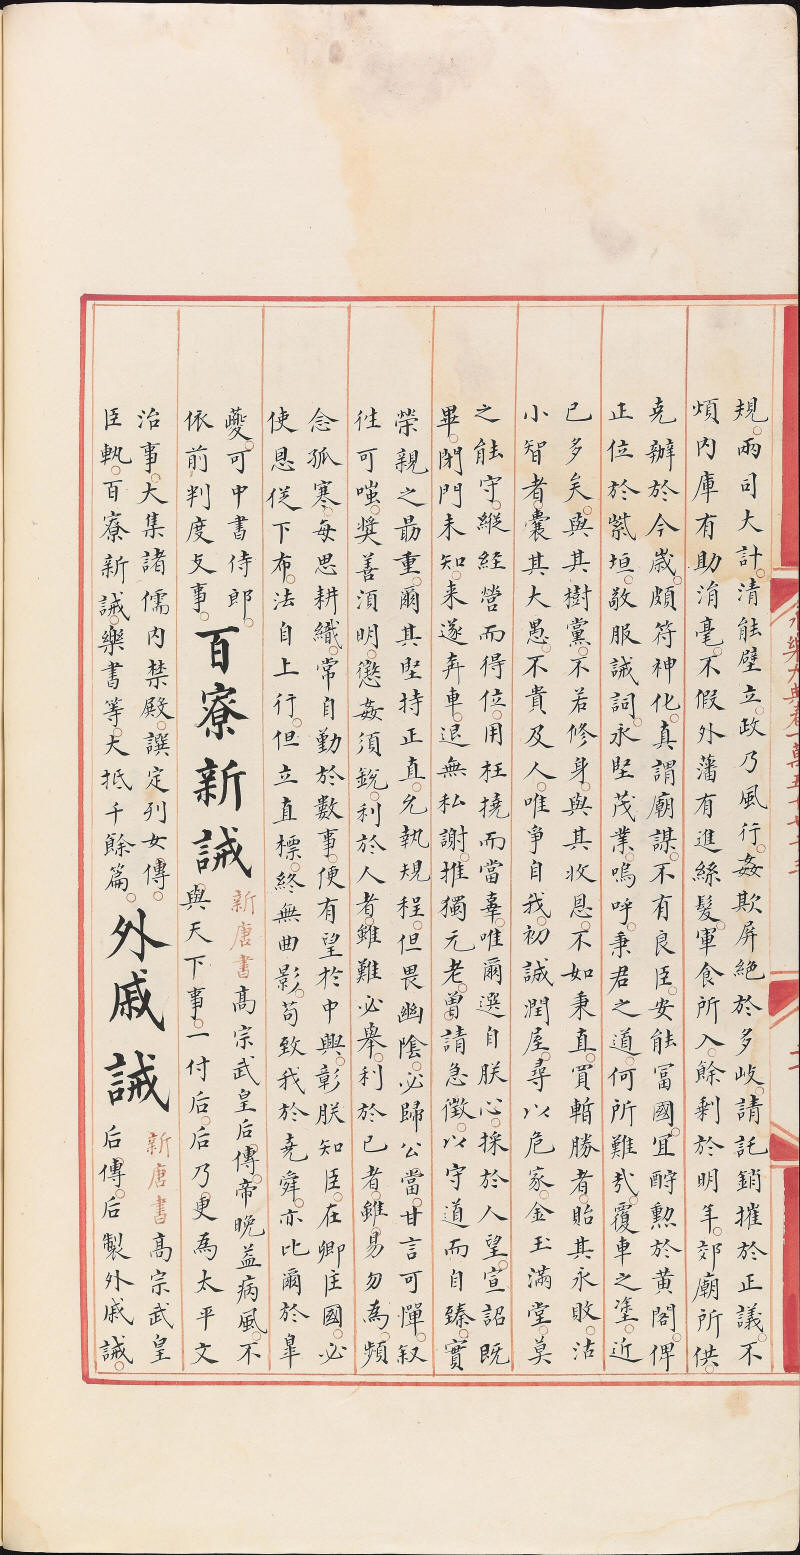 規。兩司大計。清能壁立。政乃風行。姦欺屏絕於多岐。請託銷摧於正議。不
煩內庫有助涓毫。不假外藩有進絲髮。軍食所入。餘剩於明年。郊廟所供。
克辦於今歲。頗符神化。真謂廟謀。不有良臣。安能富國。宜酧勲於黃閣。俾
正位於紫垣。敬服誡詞。永堅茂業。嗚呼。秉君之道。何所難哉。覆車之塗。近
已多矣。與其樹黨。不若修身。與其收恩。不如秉直。買暫勝者。貽其永敗。沽
小智者。囊其大愚。不貴及人。唯爭自我。初誠潤屋。尋以危家。金玉滿堂。莫
之能守。縱經營而得位。用枉撓而當辜。唯爾選自朕心。採於人望。宣詔既
畢。閉門未知。来遂奔車。退無私謝。推獨元老。曽請急徵。以守道而自臻。實
榮親之最重。爾其堅持正直。允執規程。但畏幽陰。必歸公當。甘言可憚。叙
徃可嗤。奬善湏明。懲姦須銳。利於人者。雖難必舉。利於已者。雖易勿為。頻
念孤寒。每思耕織。常自勤於數事。便有望於中興。彰朕知臣。在卿匡國。必
使恩從下布。法自上行。但立直標。終無曲影。苟致我於堯舜。亦比爾於皐
夔。可中書侍郎。
依前判度攴事。百寮新誡新唐書高宗武皇后傳。帝晚益病風。不
與天下事。一付后。后乃更為太平文
治事。大集諸儒內禁殿。譔定列女傳。
臣軌。百寮新誡。樂書等。大抵千餘篇。外戚誡新唐書高宗武皇
后傳。后製外戚誡。
永樂大典卷一萬五